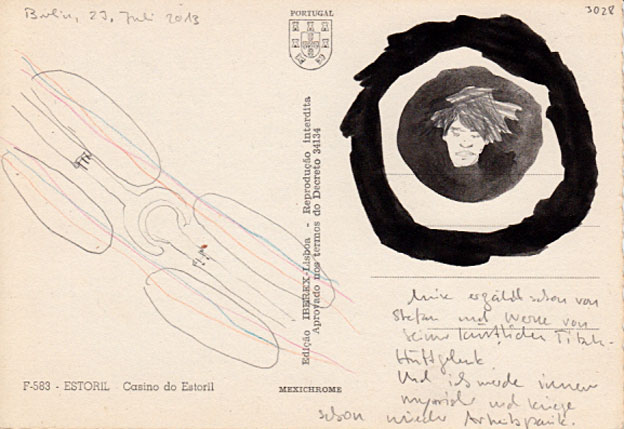 Berlin, 23. Juli 2013
PORTUGAL
3028
Edição IBEREX-Lisboa - Reprodução interdita
Aprovado nos termos do Decreto 34134
erzählt schon von
Stefan und von
künstlichen Titan-
Hüftgelenk
Und ich werde immer
und kriege
schon wieder Arbeitspanik.
F-583 - ESTORIL - Casino do Estoril
MEXICHROME